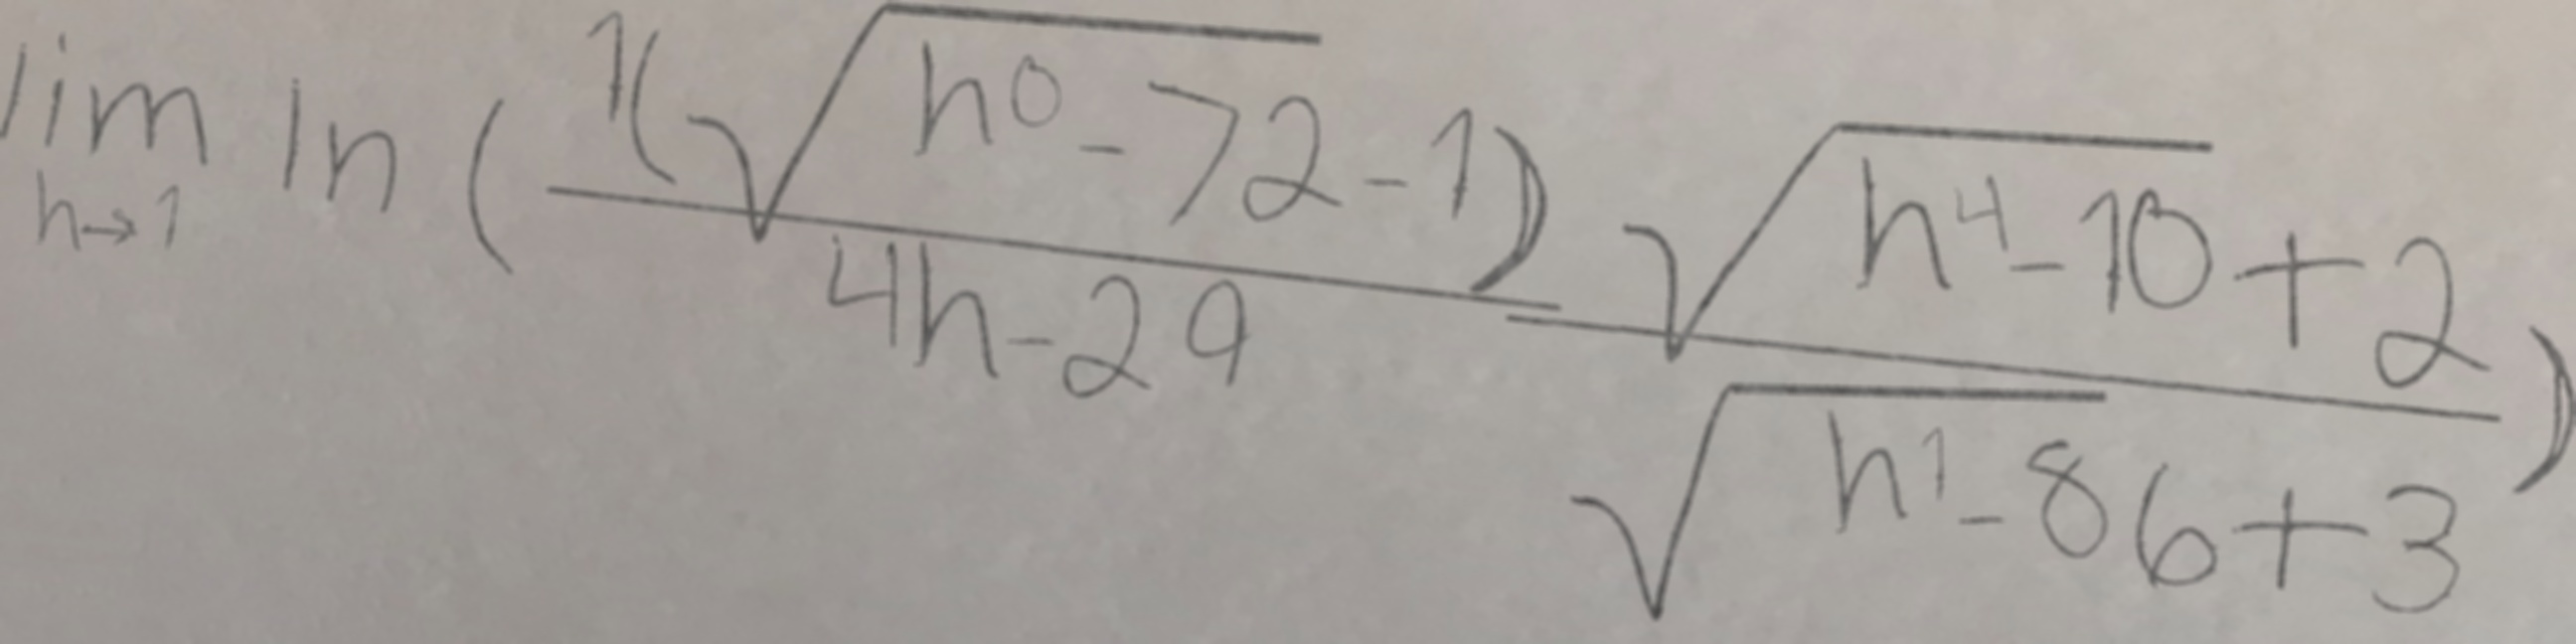 \lim_{h \to 1} \ln ( \frac{1(\sqrt{h^0 - 72} - 1)}{4h - 29} \frac{\sqrt{h^4 - 10} + 2}{\sqrt{h^1 - 86} + 3} )